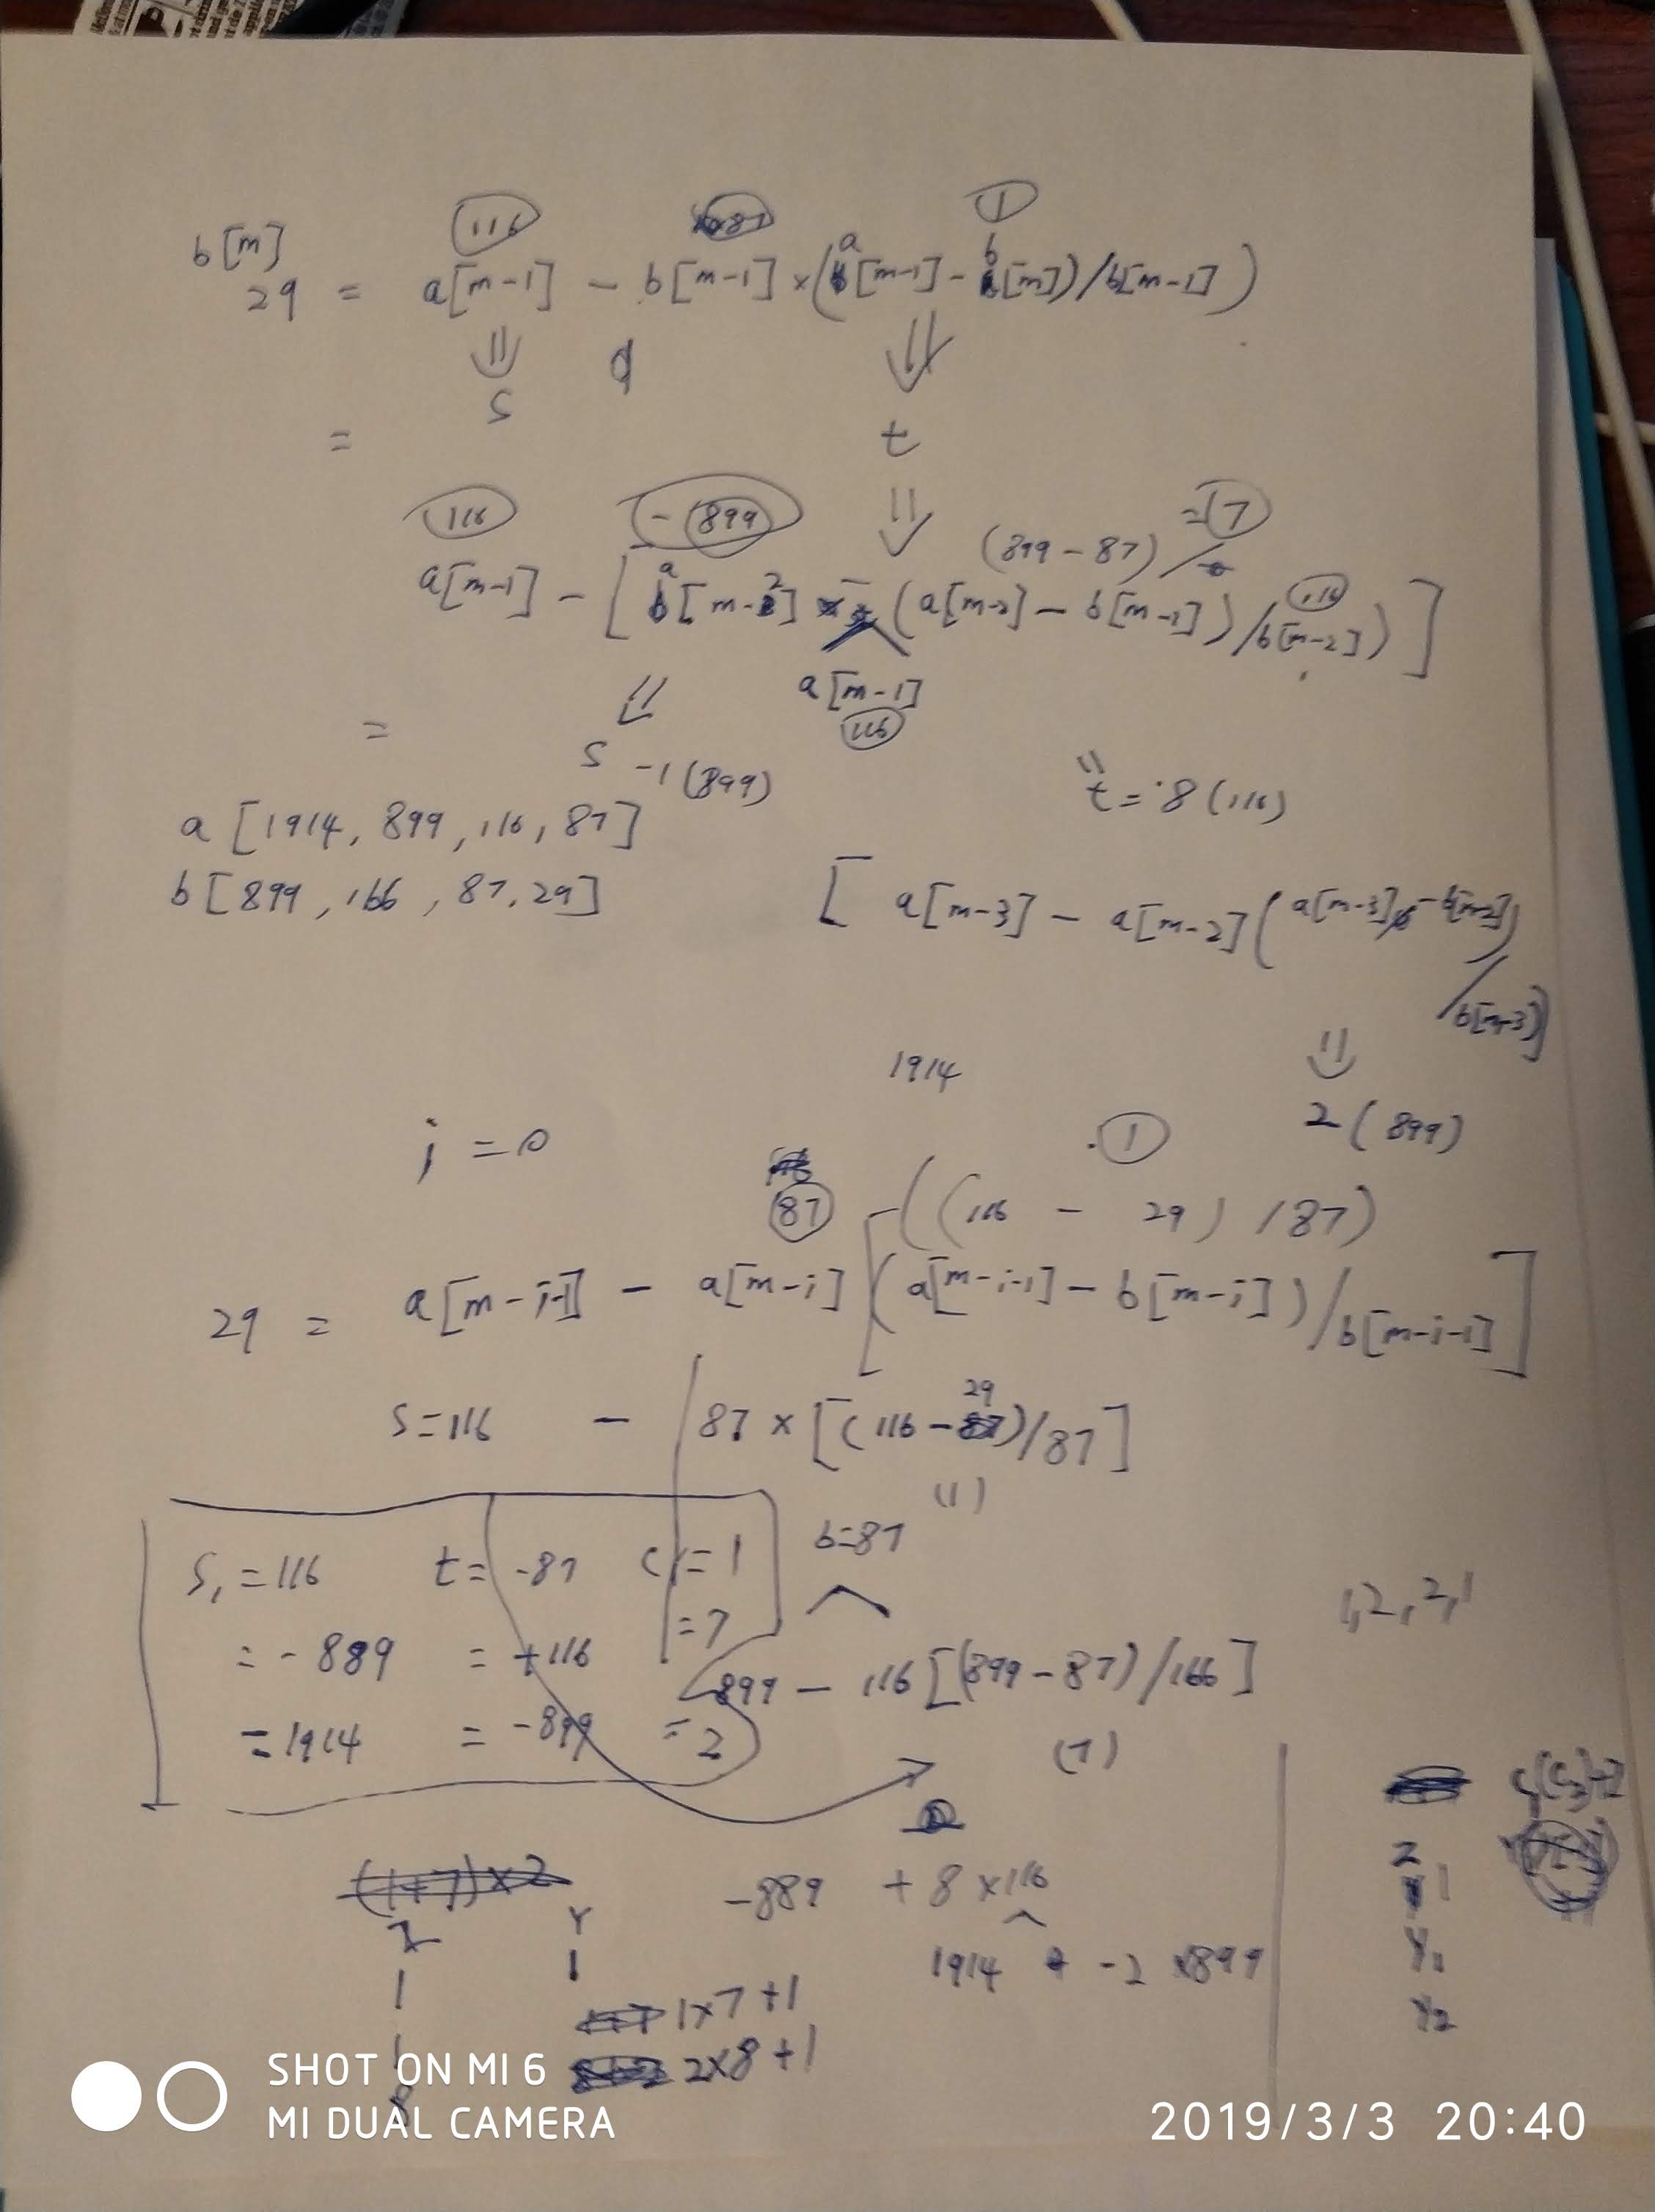 116 87 1
b[m]
29 = a[m-1] - b[m-1] × (a[m-1] - b[m])/b[m-1])
⇓ ⇓
S
= t
116 -899 ⇓ (899-87)/ =7
a[m-1] - [a[m-2] - (a[m-2] - b[m-1])/b[m-2])]
116
⇓ a[m-1]
= 116
S -1(899) t = 8(116)
a[1914, 899, 116, 87]
b[899, 166, 87, 29]
[a[m-3] - a[m-2](a[m-3] - b[m-2])
/b[m-3])]
⇓
1914
2(899)
i = 0
1
87 ((116 - 29)/87)
29 = a[m-i-1] - a[m-i][(a[m-i-1] - b[m-i])/b[m-i-1]]
S=116 - 87 × [(116-29)/87]
(1)
b=87
S₁=116 t= -87 C₁=1
1,2,2,1
= -889 = +116 =7
899 - 116[(899-87)/166]
=1914 = -899 =2
(7)
-889 + 8×116
1914 -2 ×899
Y
1 1
1×7+1
2×8+1
8
2
1
Y₁
Y₂
SHOT ON MI 6
MI DUAL CAMERA
2019/3/3 20:40